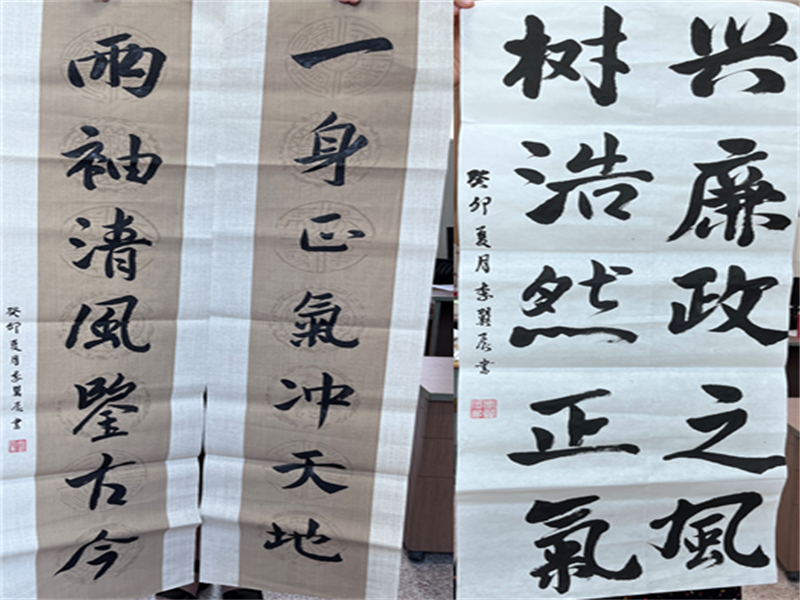 一身正氣冲天地
兩袖清風鋻古今
癸卯夏月李翼辰書
兴廉政之風
树浩然正氣
癸卯夏月李翼辰書